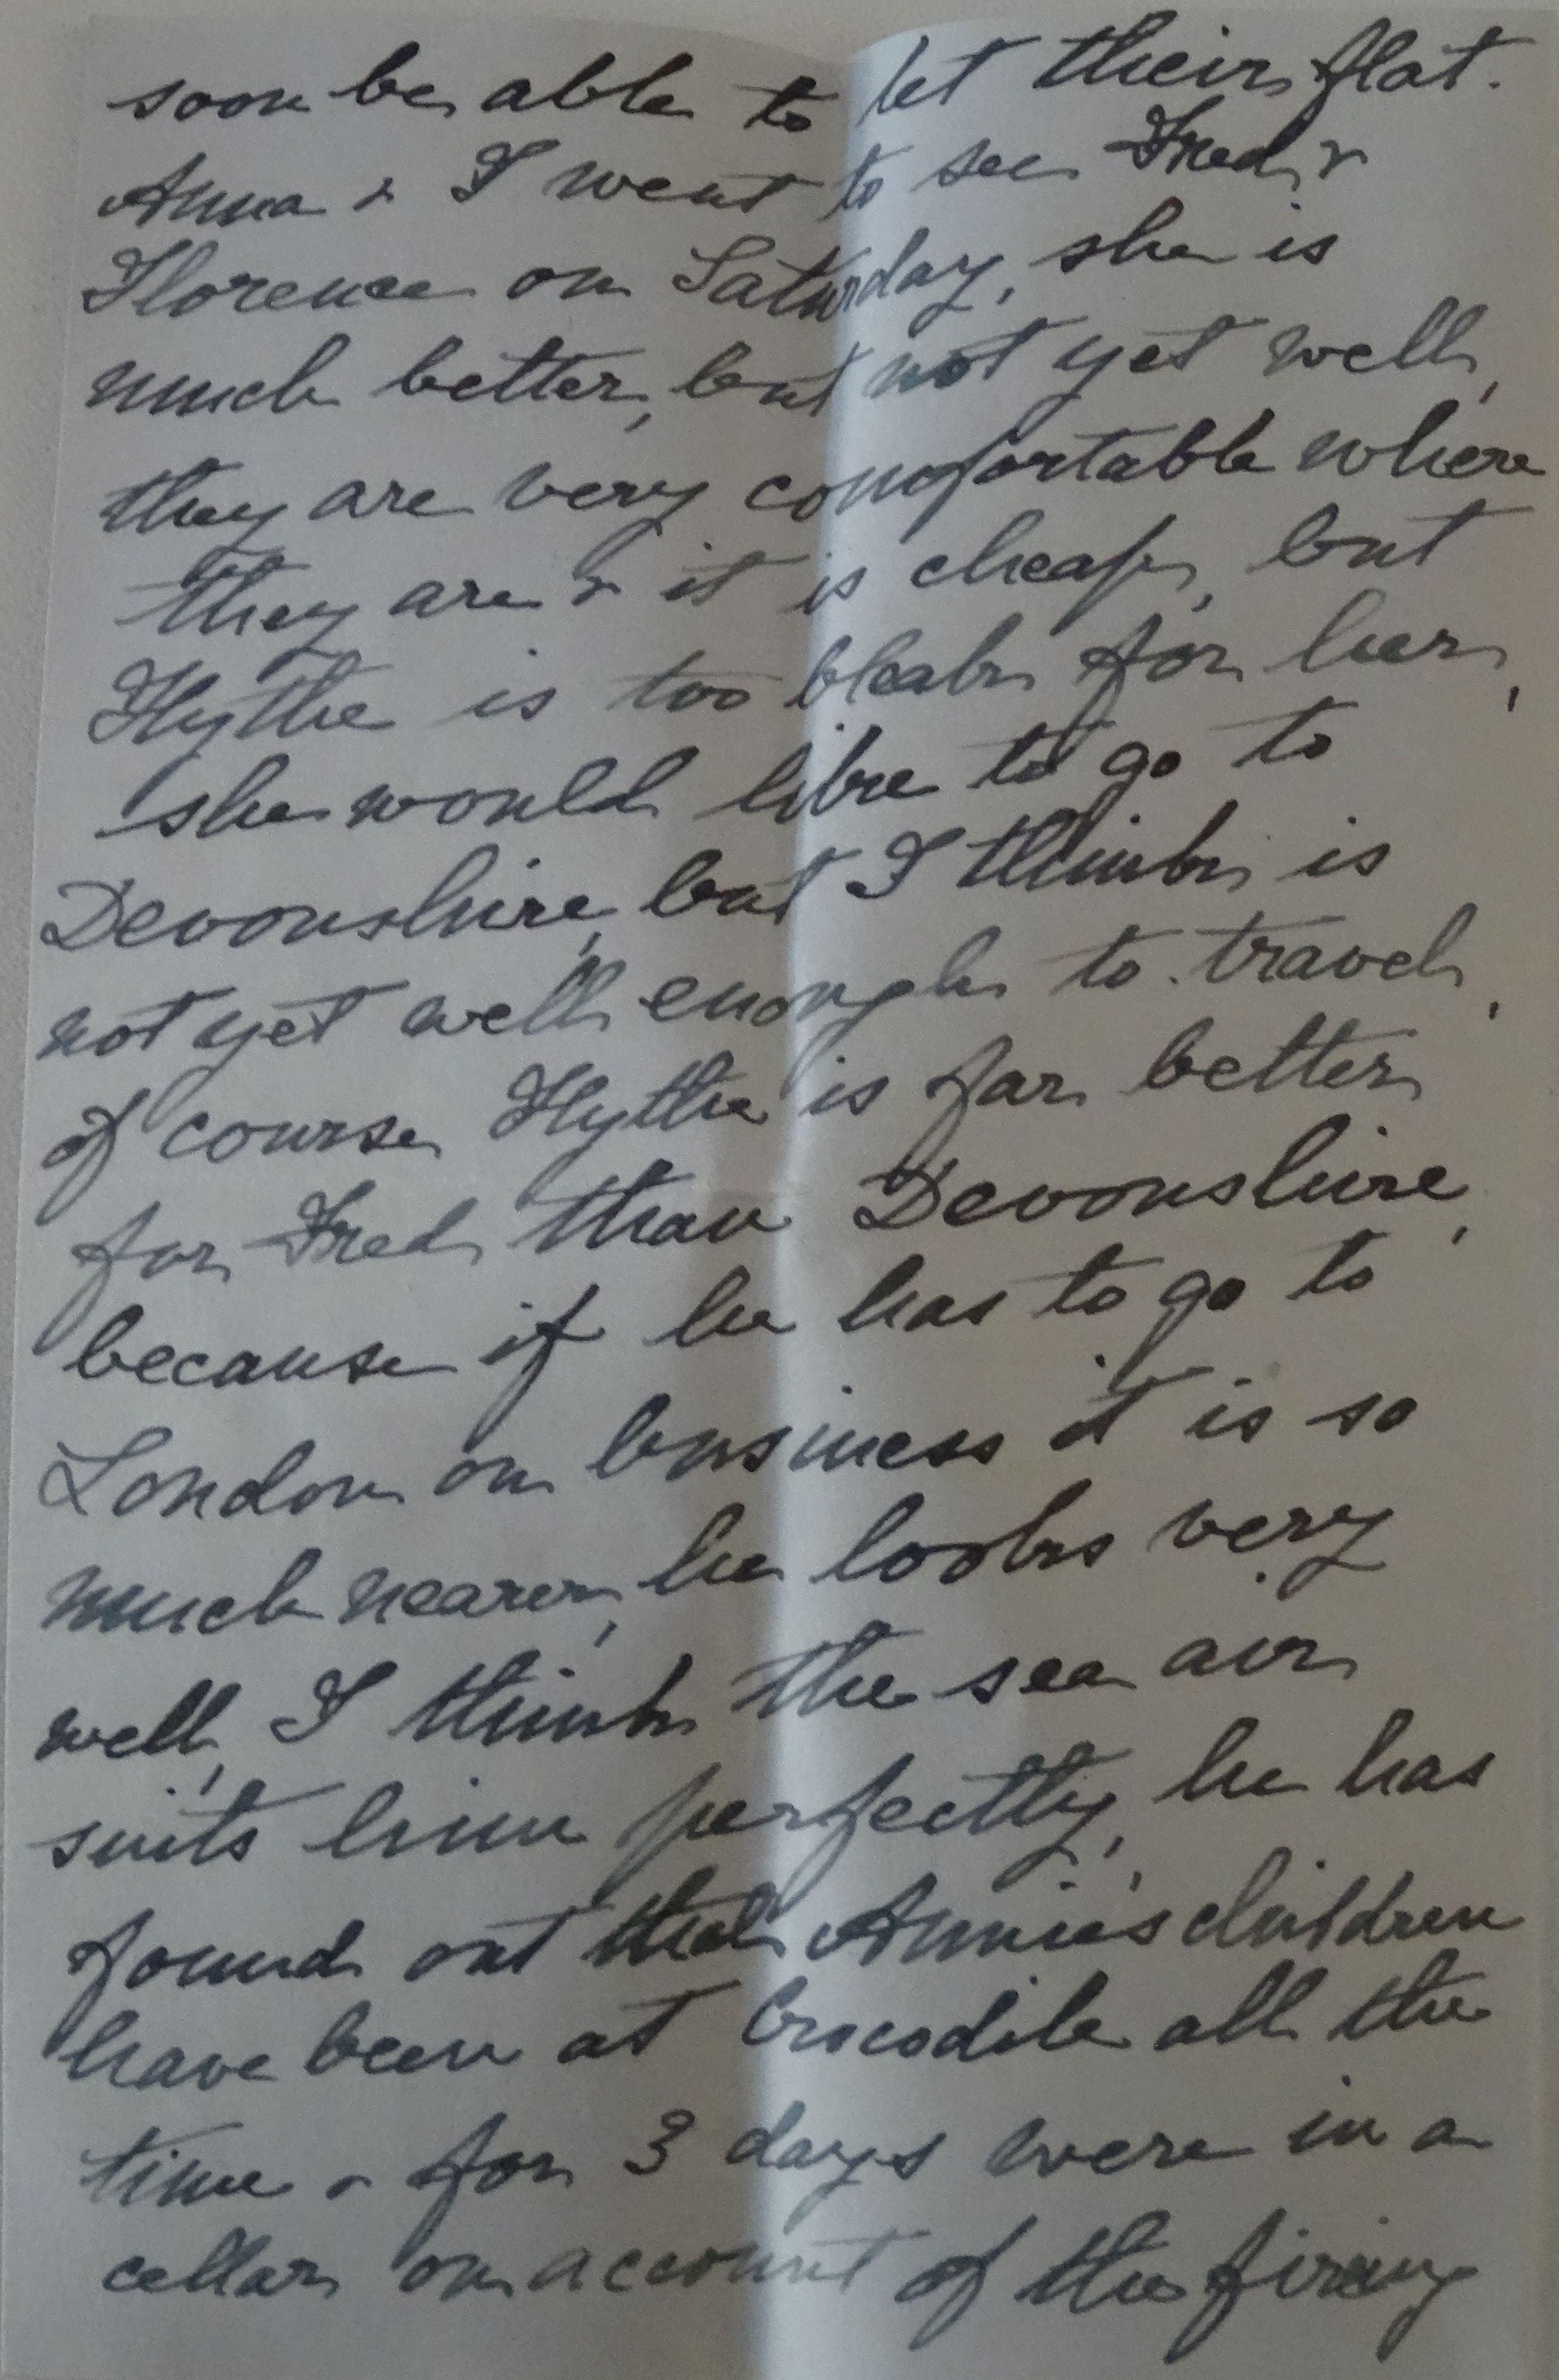 soon be able to let their flat.
Anna & I went to see Fred &
Florence on Saturday, she is
much better, but not yet well,
they are very comfortable where
they are & it is cheap, but
Hythe is too bleak for her,
she would like to go to
Devonshire, but I think is
not yet well enough to travel,
of course Hythe is far better
for Fred than Devonshire,
because if he has to go to
London on business it is so
much nearer, he looks very
well, I think the sea air
suits him perfectly, he has
found out that Annie's children
have been at Crocodile all the
time & for 3 days were in a
cellar on account of the firing